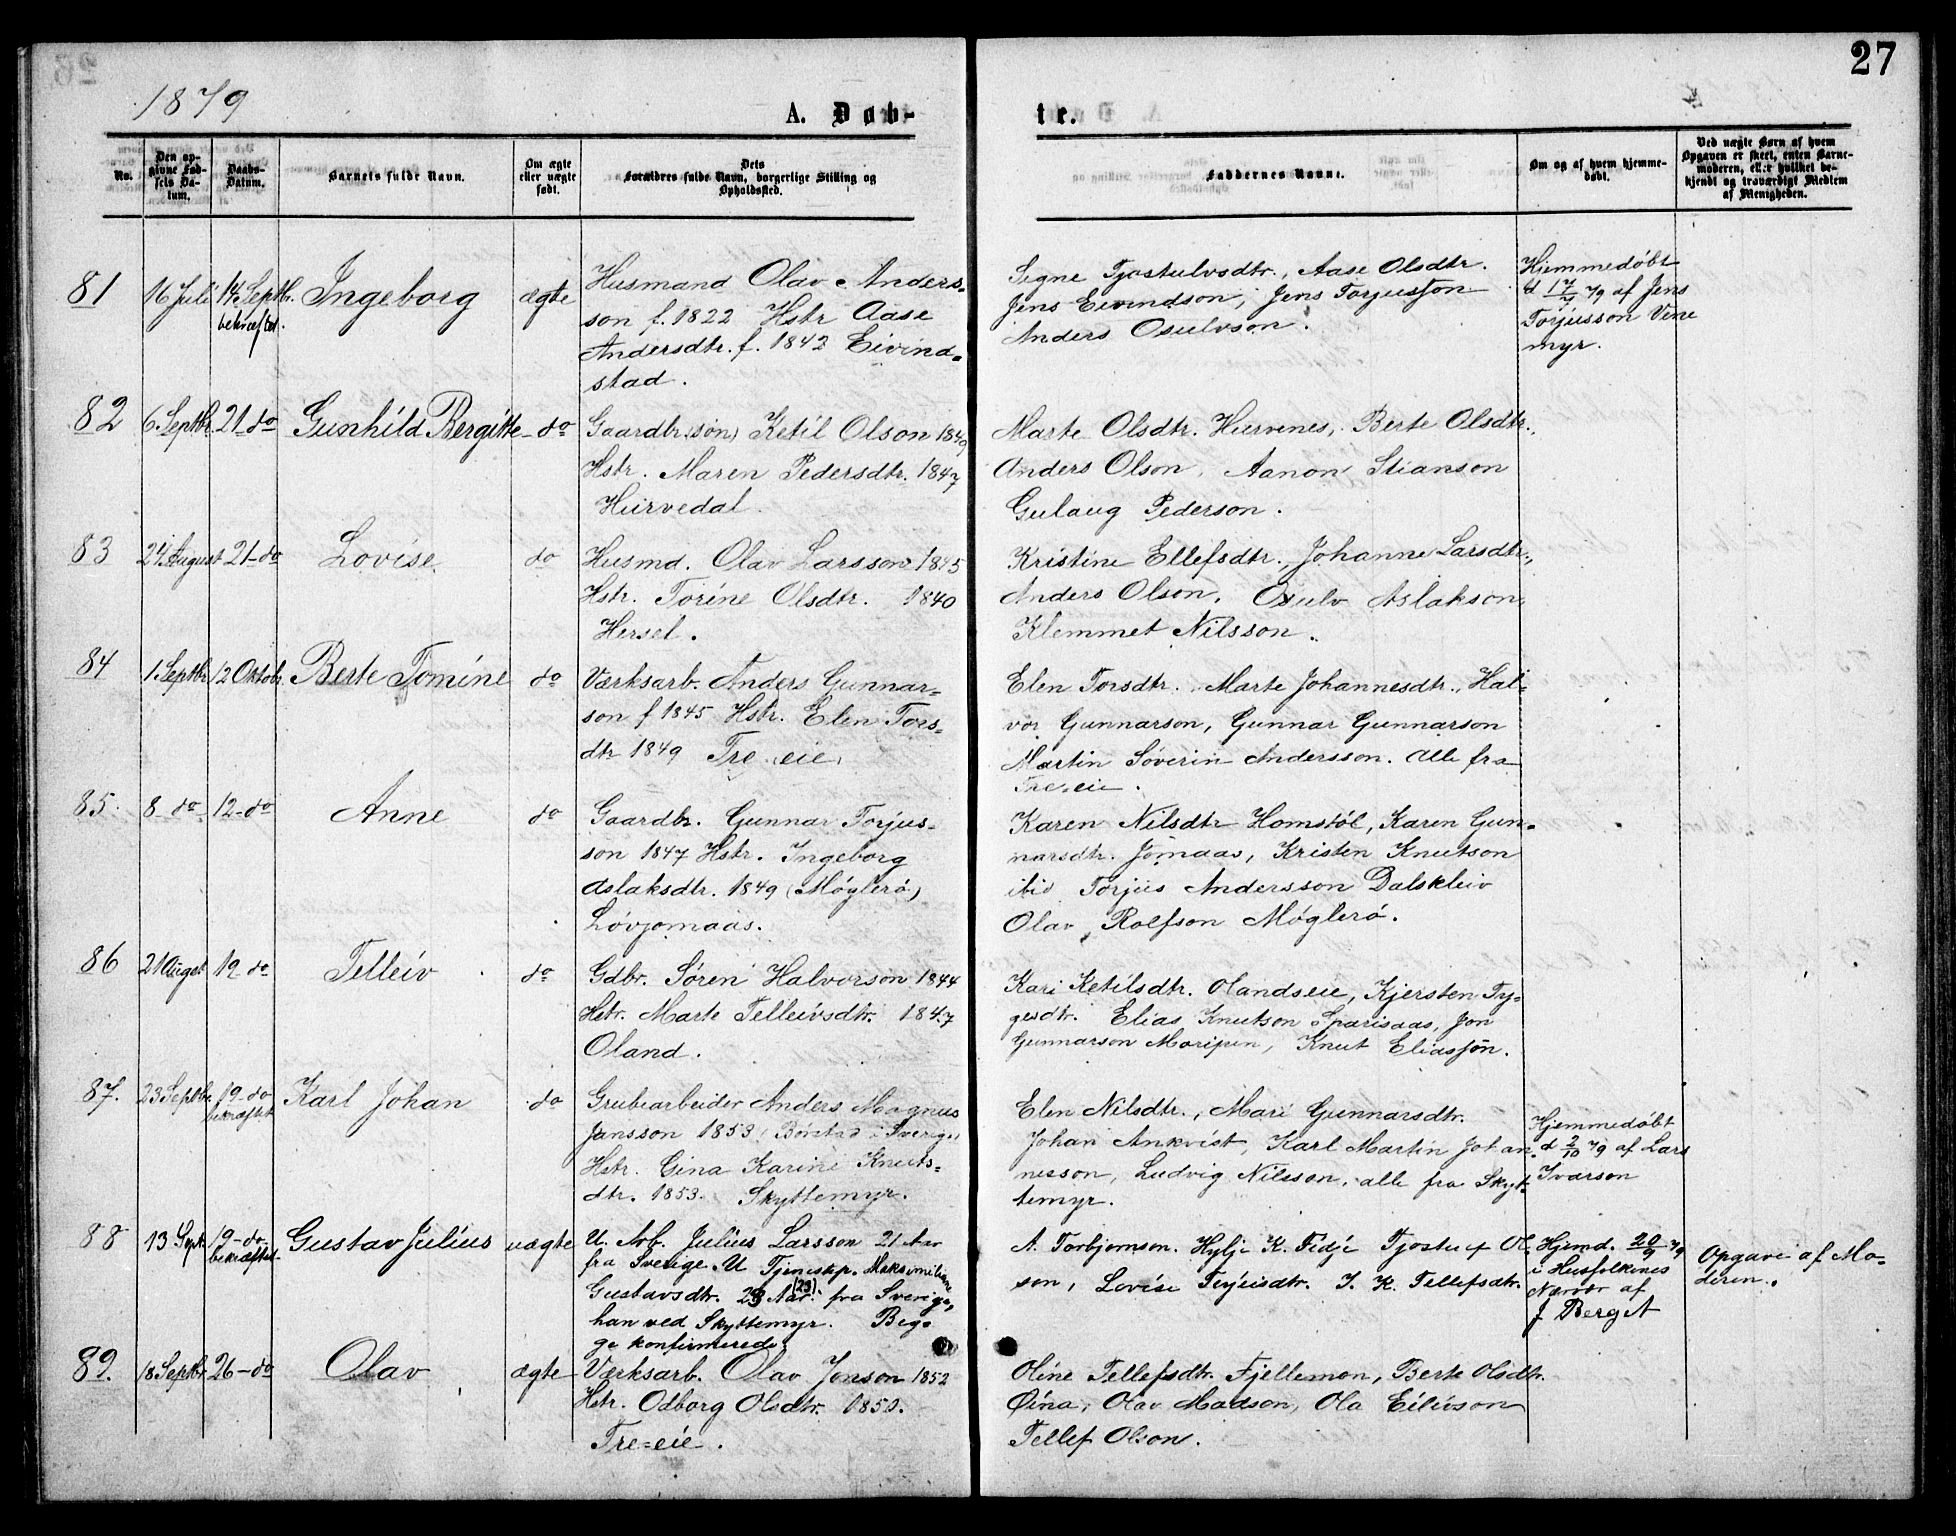 27
1879
A. Døb-
te.
No.
Den op-
givne Fød-
sels Da-
tum.
Daabs-
Datum.
Barnets fulde Navn.
Om ægte
eller uægte
født.
Dets
Forældres fulde Navn, borgerlige Stilling og
Opholdssted.
Faddernes Navne.
Om og af hvem hjemme-
døbt.
Ved uægte Børn af hvem
Opgaven er skeet, enten Barne-
moderen, eller hvilket be-
kjendt og troværdigt Medlem
af Menigheden.
81 16 Juli 14 Septbr. Ingeborg ægte
bekræftet.
Husmand Olav Anders-
son f. 1822 Hstr Aase
Andersdtr. f. 1842 Eivind-
stad.
Signe Tjostulvsdtr., Aase Olsdtr.
Jens Eivindson, Jens Torjusson
Anders Osulvson.
Hjemmedøbt
d 17/7 79 af Jens
Torjusson Vene
myr.
82 6 Septbr. 21 do Gunhild Bergitte do
Gaardbr.(søn) Ketil Olson 1849
Hstr. Maren Pedersdtr. 1847
Hurvedal.
Marte Olsdtr. Hurvenes, Berte Olsdtr.,
Anders Olson, Aanon Stianson
Gulaug Pederson.
83 24 August 21 do Lovise do
Husmd. Olav Larsson 1845
Hstr. Torine Olsdtr. 1840
Hersel.
Kristine Ellefsdtr., Johanne Larsdtr.,
Anders Olson, Osulv Aslakson,
Klemmet Nilsson.
84 1 Septbr. 12 Oktobr. Berte Tomine do
Værksarb. Anders Gunnar-
son f 1845 Hstr. Elen Tors-
dtr 1849 Tre eie
Elen Torsdtr. Marte Johannesdtr., Hal-
vor Gunnarson, Gunnar Gunnarson
Martin Søverin Andersson. Alle fra
Tre eie.
85. 8 do 12 do Anne do
Gaardbr. Gunnar Torjus-
son 1847 Hstr. Ingeborg
Aslaksdtr. 1849 (Møglerø)
Løvjomaas.
Karen Nilsdtr Homstøl, Karen Gun-
narsdtr. Jomaas, Kristen Knutson
ibid Torjus Andersson Dalskleiv
Olav Rolfson Møglerø.
86 21 August 12 do Telleiv do
Gdbr. Søren Halvorson 1844
Hstr. Marte Telleivsdtr. 1847
Oland.
Kari Ketilsdtr. Olandseie, Kjersten Ty-
gesdtr. Elias Knutson Sparisaas, Jon
Gunnarson Maripen, Knut Eliassøn.
87. 23 Septbr. 19 do Karl Johan do
bekræftet
Grubearbeider Anders Magnus
Jansson 1853 (Børstad i Sverige)
Hstr. Gina Karine Knuts-
dtr. 1853. Skyttemyr.
Elen Nilsdtr., Mari Gunnarsdtr.
Johan Ankvist, Karl Martin Johan-
nesson, Ludvig Nilsson, alle fra Skyt-
temyr.
Hjemmedøbt
d 2/10 79 af Lars
Ivarson
88 13 Sept. 19 do Gustav Julius uægte
bekræftet
U. Arb. Julius Larsson 21 Aar
fra Sverige. U Tjenestep. Maksimiliane
Gustavsdtr. 23 Aar (23) fra Sverige,
han ved Skyttemyr. Beg-
ge konfirmerede
A. Torbjørnson. Hylje K. Fidje Tjostulf Ol-
son, Lovise Terjeisdtr. I. K. Tellefsdtr.
Hjemd. 20/9 79
i Husfolkenes
Nærvær af
J Berget
Opgave af Mo-
deren.
89. 18 Septbr 26 do Olav ægte
Værksarb. Olav Jonson 1852
Hstr. Odborg Olsdtr. 1850.
Tre-eie.
Oline Tellefsdtr. Fjellemon, Berte Olsdtr.
Øina, Olav Madson, Ola Eilivson
Tellef Olson.